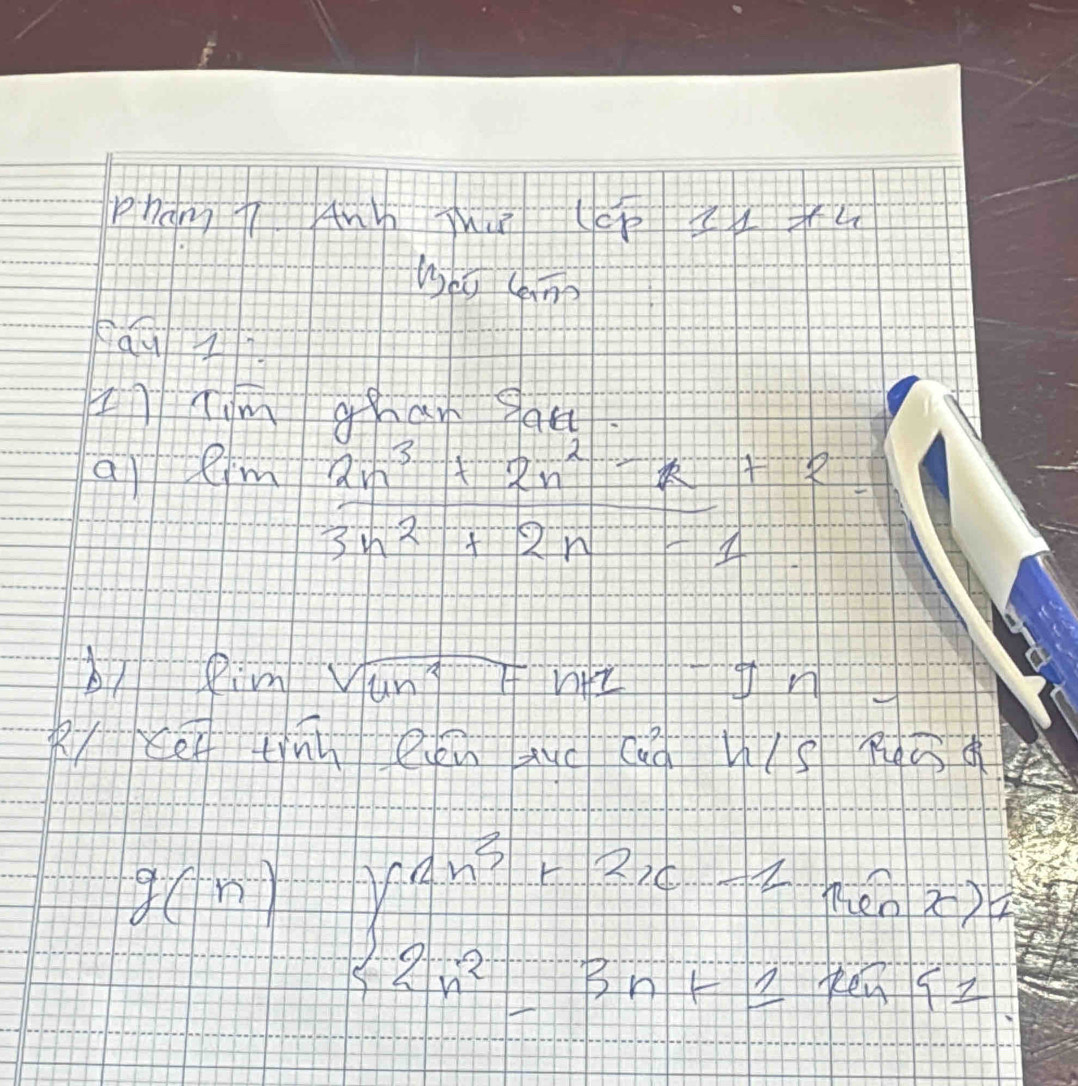 Phạm T. Anh Thư lớp 11 x4
Bài làm
Câu 1:
1) Tìm ghạn sau.
a) lim 2n³ + 2n² - + 2
3n² + 2n - 1
b) lim √4n² + n+1 - n
2) xét tính liên tục của h/s trên
g(n) { 2n³ + 2x - 1 nến x > 1
{ 2n² - 3n + 1 nến ≤ 1